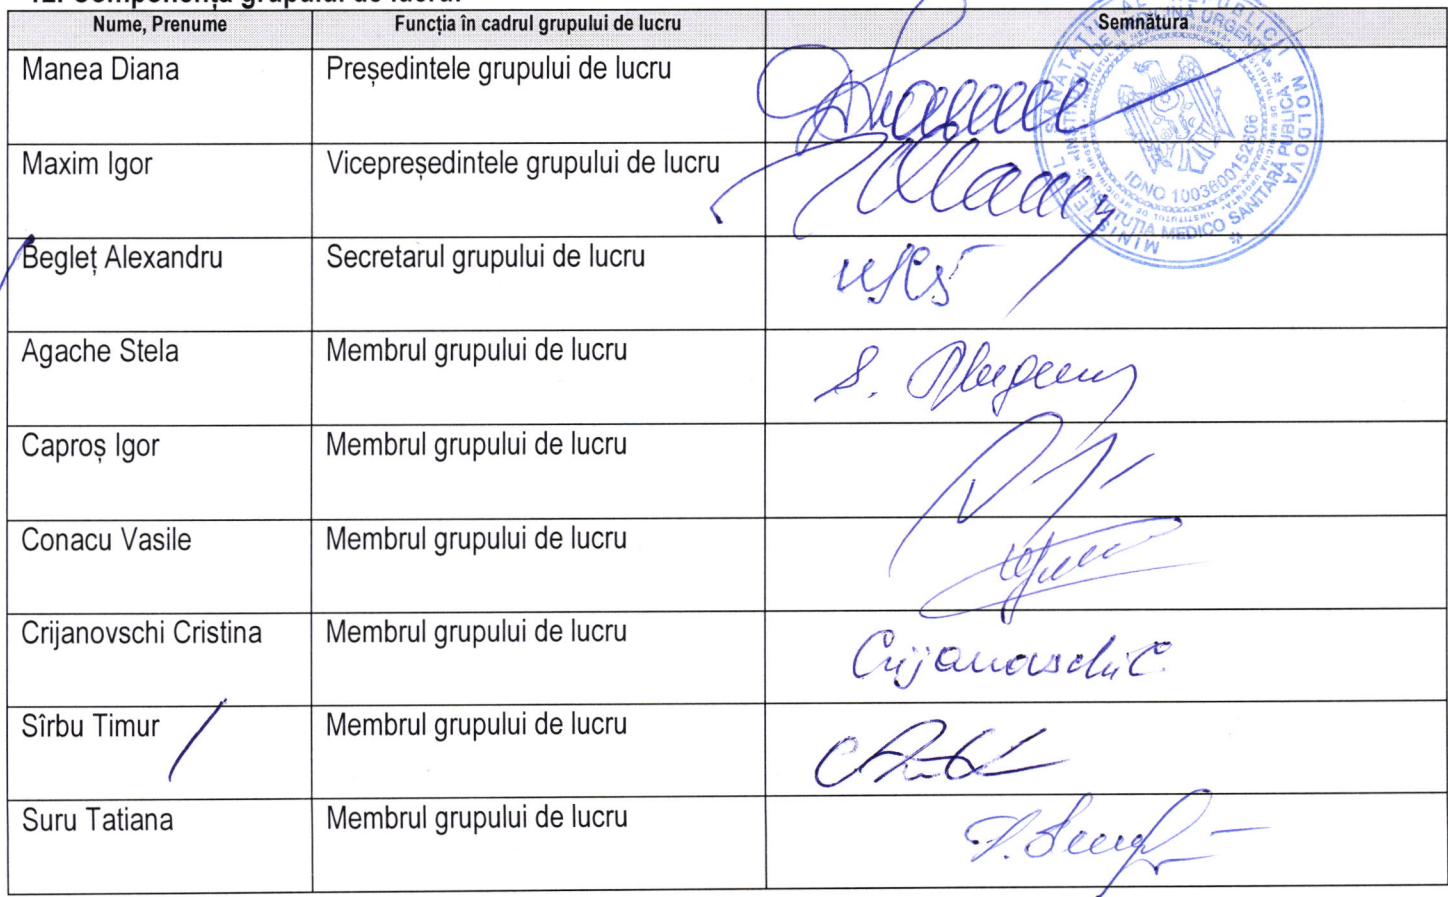 Nume, Prenume Funcția în cadrul grupului de lucru Semnătura
Manea Diana Președintele grupului de lucru
Maxim Igor Vicepreședintele grupului de lucru
Begleț Alexandru Secretarul grupului de lucru
Agache Stela Membrul grupului de lucru
Caproș Igor Membrul grupului de lucru
Conacu Vasile Membrul grupului de lucru
Crijanovschi Cristina Membrul grupului de lucru
Sîrbu Timur Membrul grupului de lucru
Suru Tatiana Membrul grupului de lucru
MOLDOVA
INSTITUȚIA MEDICO SANITARĂ PUBLICĂ
IDNO 1003600152606